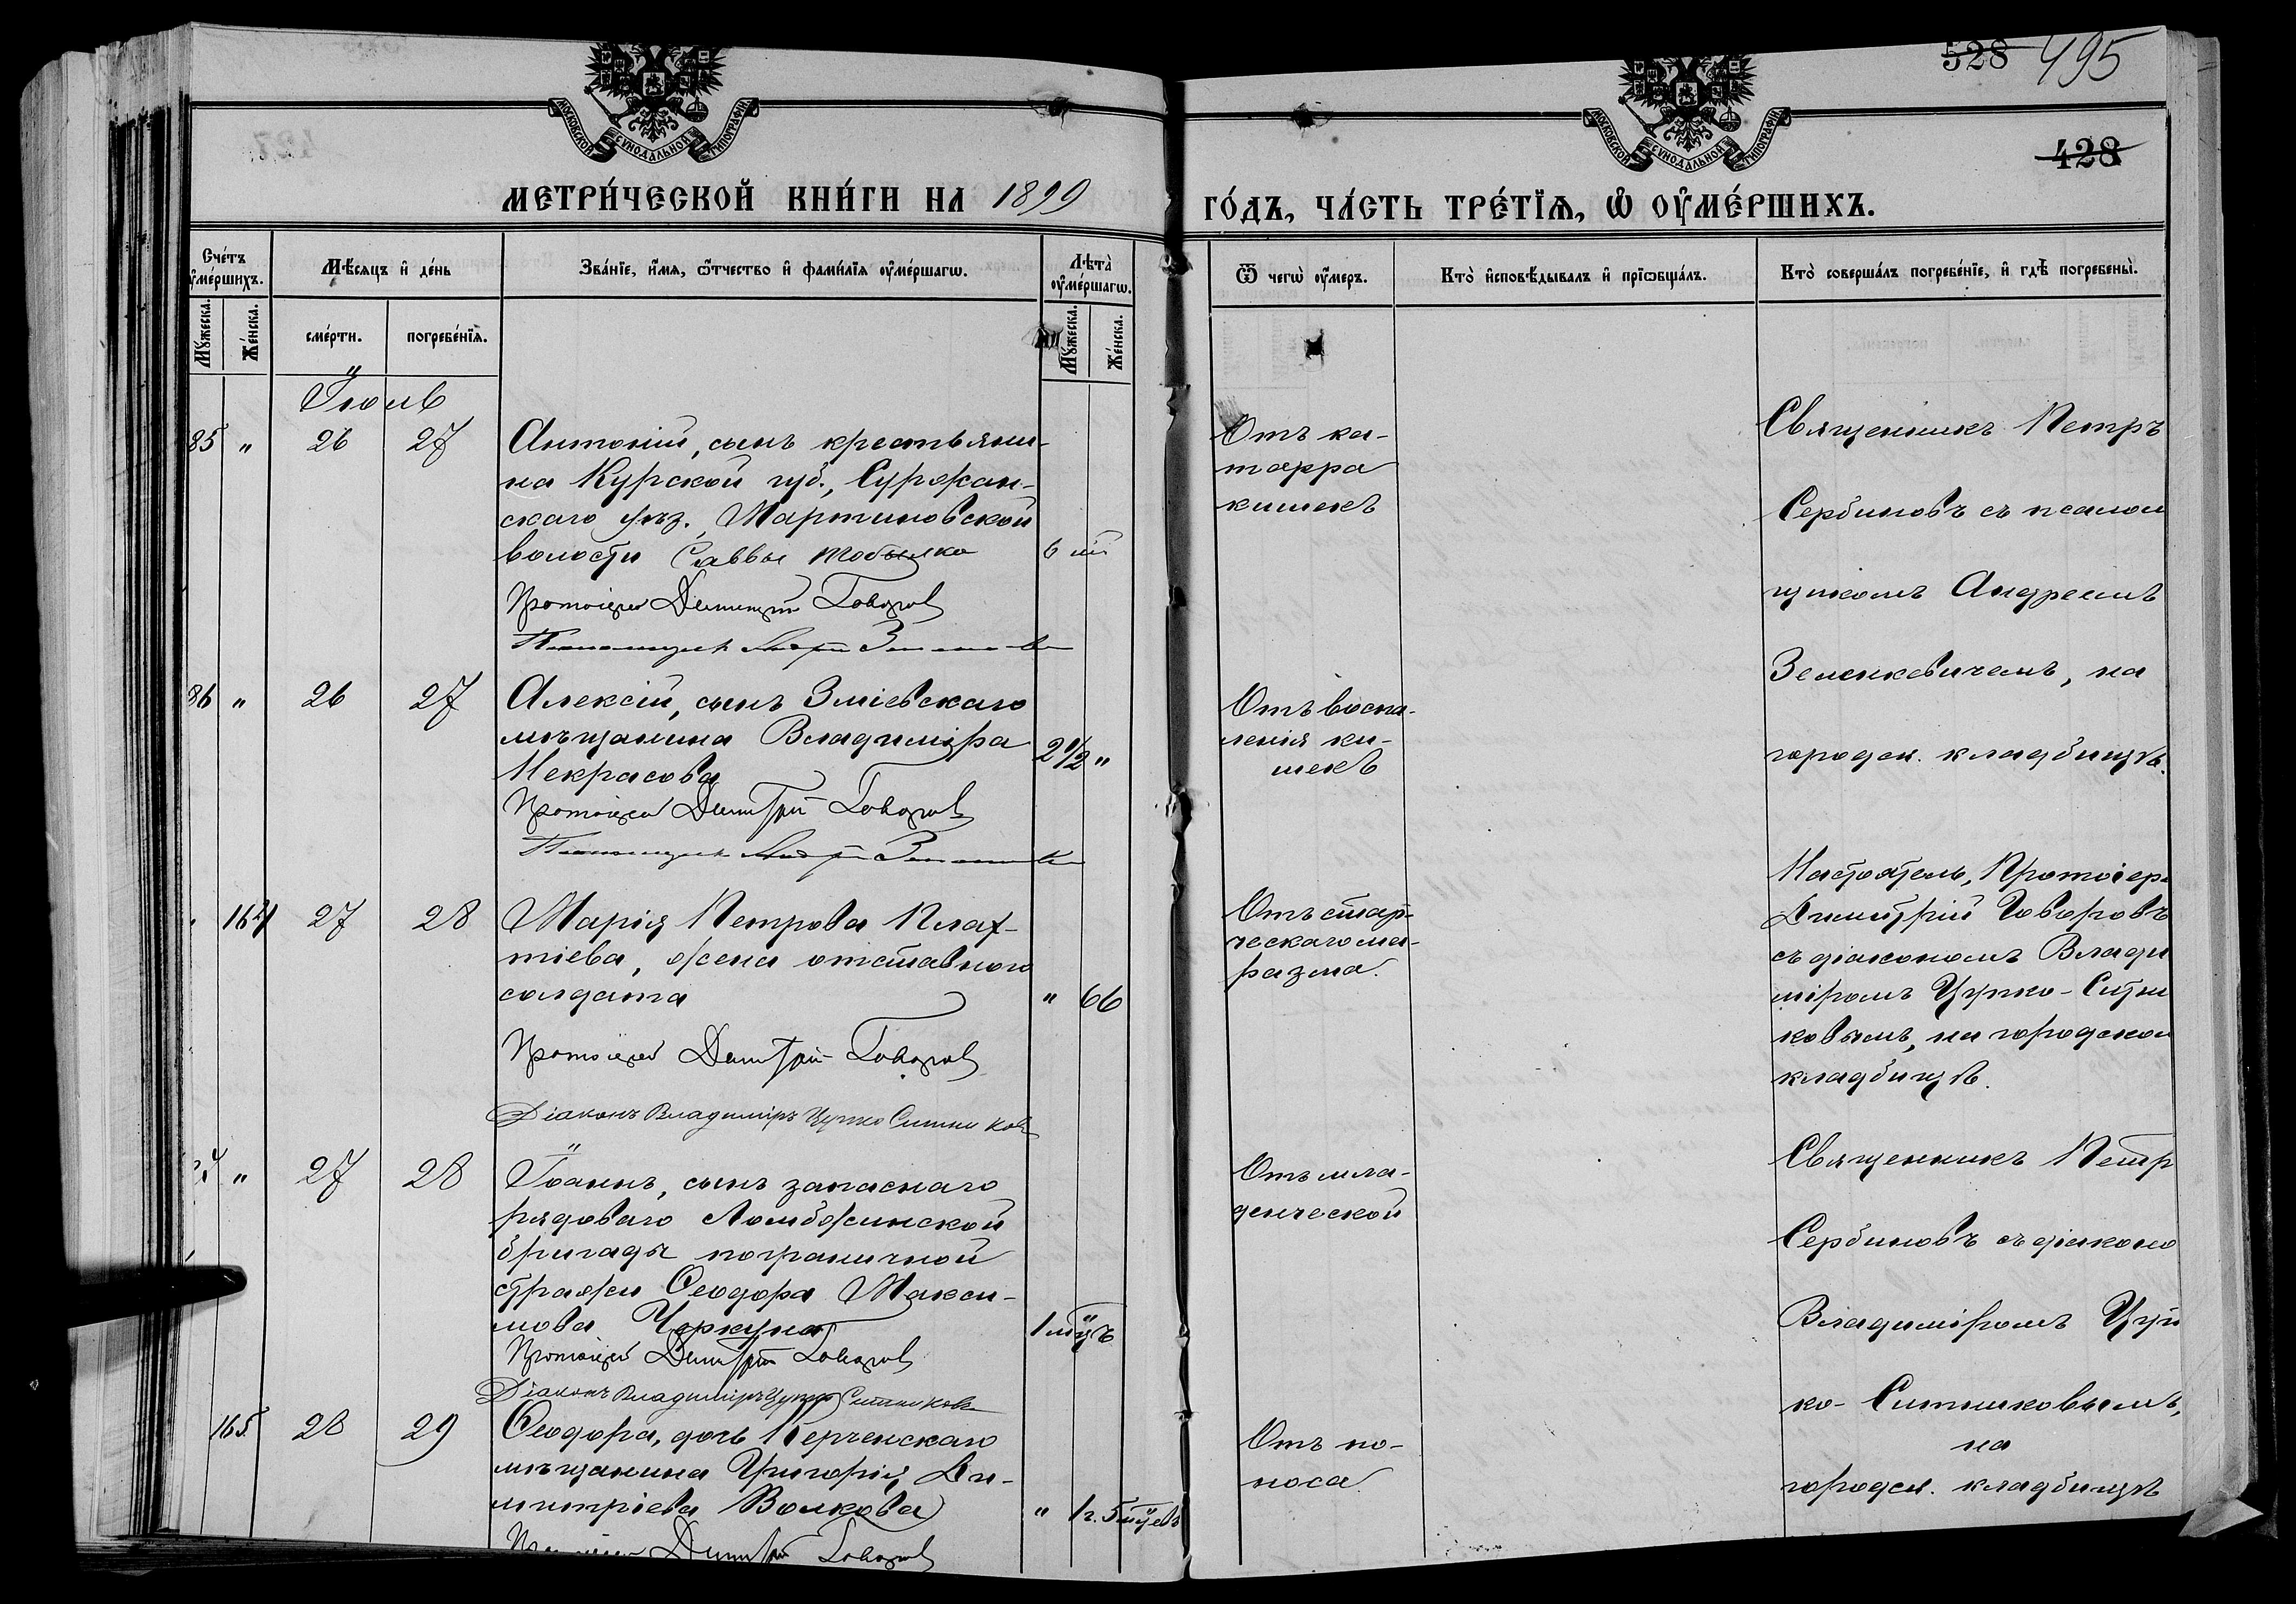 528 495
428
МОСКОВСКОЙ СѴНОДАЛЬНОЙ ТИПОГРАФІИ
МОСКОВСКОЙ СѴНОДАЛЬНОЙ ТИПОГРАФІИ
МЕТРИ́ЧЕСКОЙ КНИ́ГИ НА 1899
ГО́ДЪ, ЧА́СТЬ ТРЕ́ТІѦ, Ѡ ОУМЕ́РШИХЪ.
Сче́тъ
оуме́ршихъ.
Мѣсяцъ и де́нь
Зва́нїе, и́мя, ѿтчество и фами́лїя оуме́ршагѡ.
Лѣта̀
оуме́ршагѡ.
Му́жеска.
Же́нска.
сме́рти.
погребе́нїя.
Му́жеска.
Же́нска.
Ѿ чегѡ̀ оу́меръ.
Кто̀ исповѣ́дывалъ и прїѡбща́лъ.
Кто̀ соверша́лъ погребе́нїе, и гдѣ̀ погребены̀.
Іюль
85 " 26 27
Антоній, сынъ крестьяни-
на Курской губ., Суржан-
скаго уѣз., Мартиновской
волости Саввы
6
Протоіерей Димитрій Говоровъ
Псаломщикъ
Отъ ка-
тарра
кишекъ
Священникъ Петръ
Сербиновъ съ псалом
щикомъ Андреемъ
Зеленкевичемъ, на
городск. кладбищѣ.
86 " 26 27
Алексій, сынъ Зміевскаго
мѣщанина Владиміра
Некрасова
2 1/2 "
Протоіерей Димитрій Говоровъ
Псаломщикъ
Отъ воспа-
ленія ки-
шекъ
164 27 28
Марія Петрова Плах-
тіева, жена отставного
солдата
" 66
Протоіерей Димитрій Говоровъ
Діаконъ Владиміръ Цупко Ситниковъ
Отъ старч-
ческаго ма-
разма.
Настоятель, Протоіер.
Димитрій Говоровъ
съ діакономъ Влади
міромъ Цупко-Ситни
ковымъ, на городском
кладбищѣ.
" 27 28
Іоаннъ, сынъ запаснаго
рядоваго Ломбжинской
бригады пограничной
стражи Ѳеодора Макси-
мова Черкуна
1 мцъ
Протоіерей Димитрій Говоровъ
Діаконъ Владиміръ Цупко Ситниковъ
Отъ мла-
денческой
Священникъ Петр
Сербиновъ съ діаконо
Владиміромъ Цуп
ко-Ситниковымъ,
на
городск. кладбищѣ
165 28 29
Ѳеодора, дочь Керченскаго
мѣщанина Григорія Ди-
митріева Волкова
" 1 г. 5 мцевъ
Протоіерей Димитрій Говоровъ
Отъ по-
носа